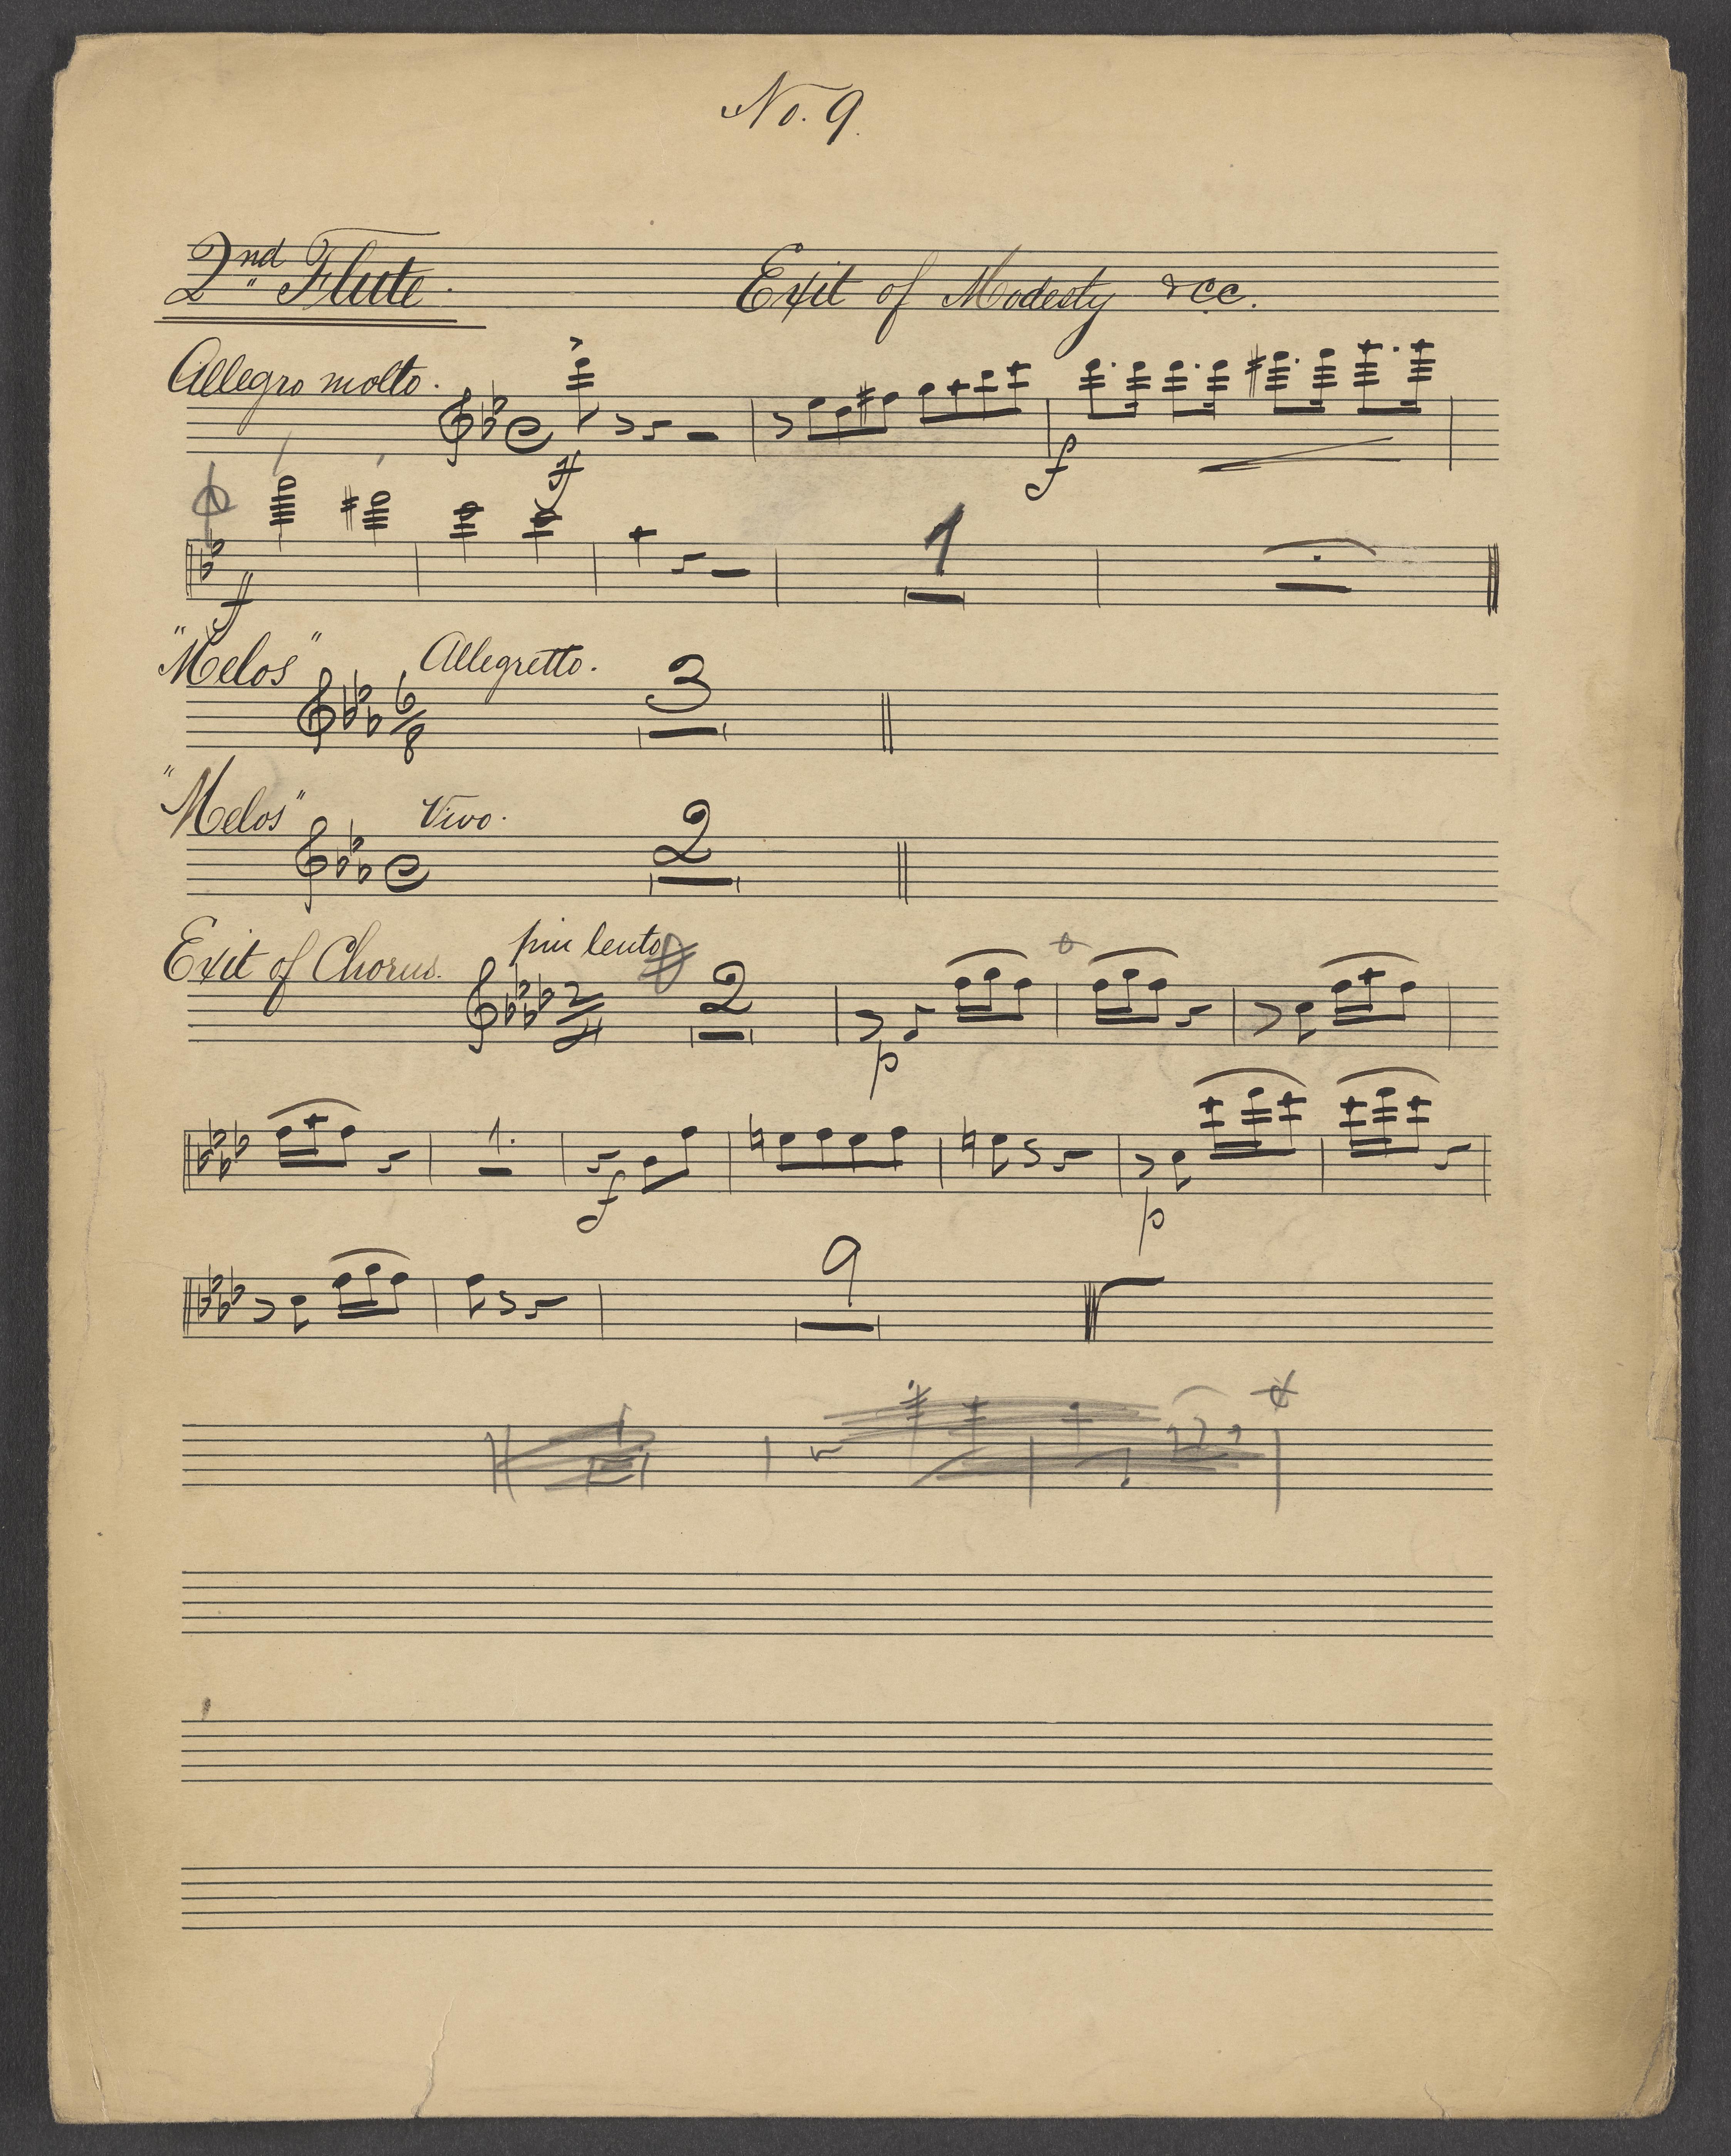 No. 9.
2nd Flute. Exit of Modesty &cc.
Allegro molto.
ff f
1
ff
"Melos" Allegretto.
6/8 3
"Melos" Vivo.
2
Exit of Chorus. piu lento
2/4 2
p
1.
f p
9